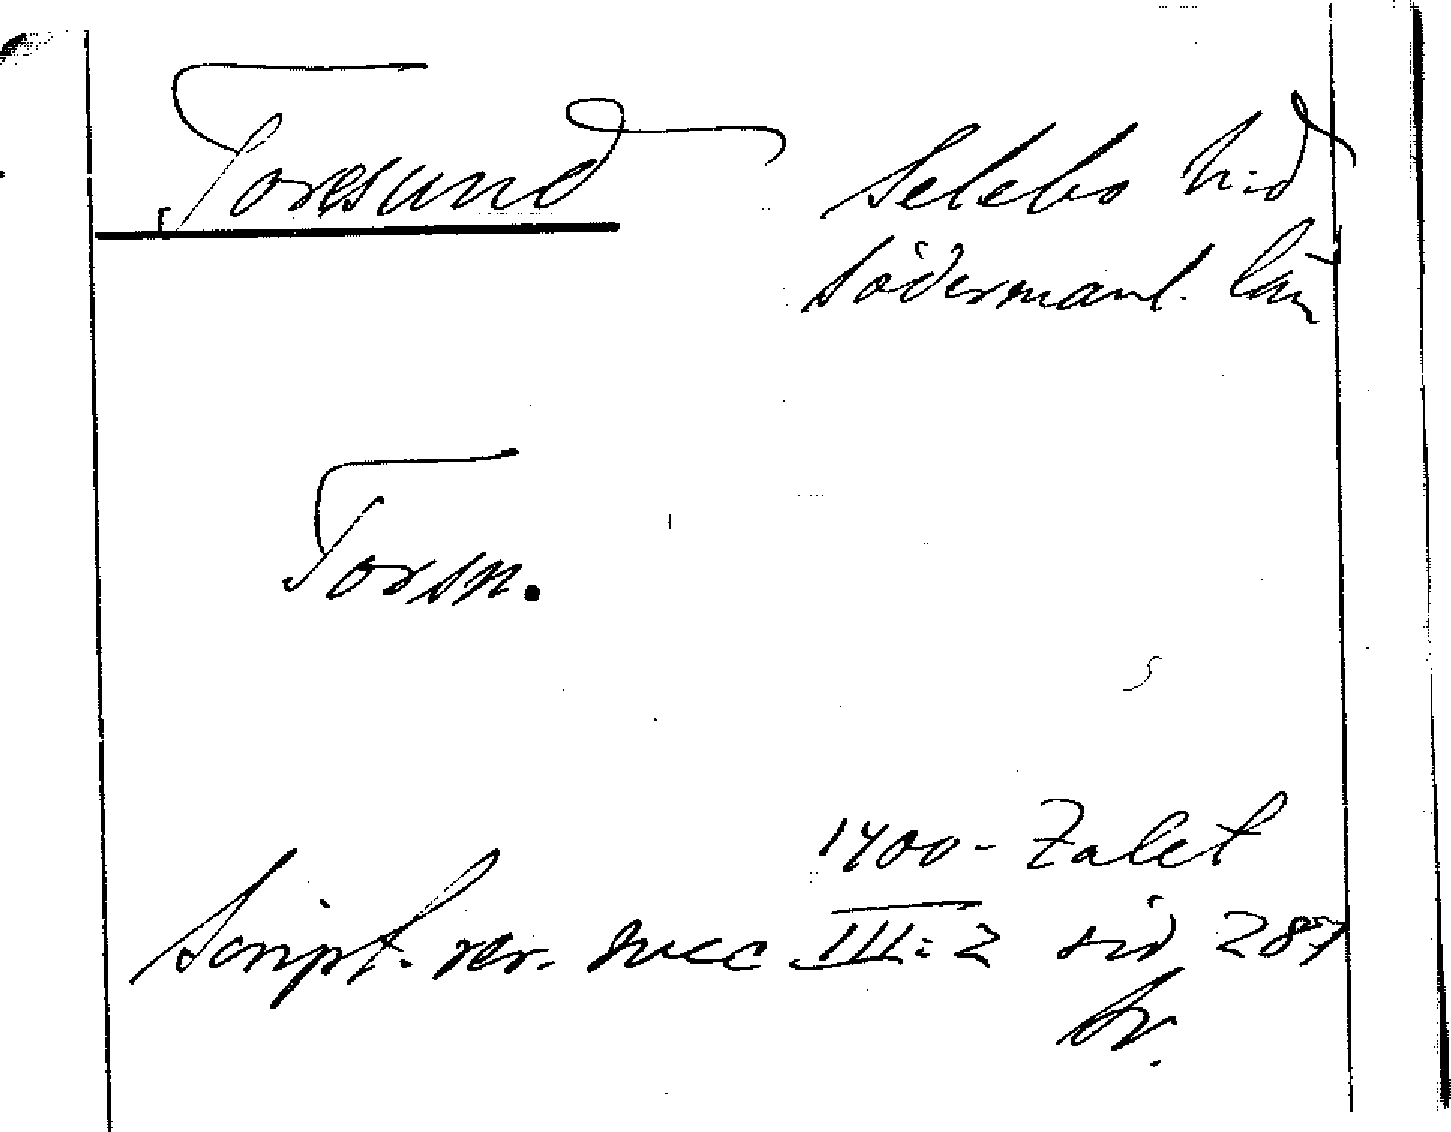 Toresund Selebo h-d
Södermanl. län
Torsn.
1400-talet
Script. rer. svec III:2 sid 287